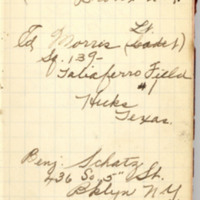 Lt.
Ed Morris (Cadet)
Sq. 139-
Taliaferro Field
Hicks
Texas.
Benj. Schatz
436 So. 5" St.
Bklyn N.Y